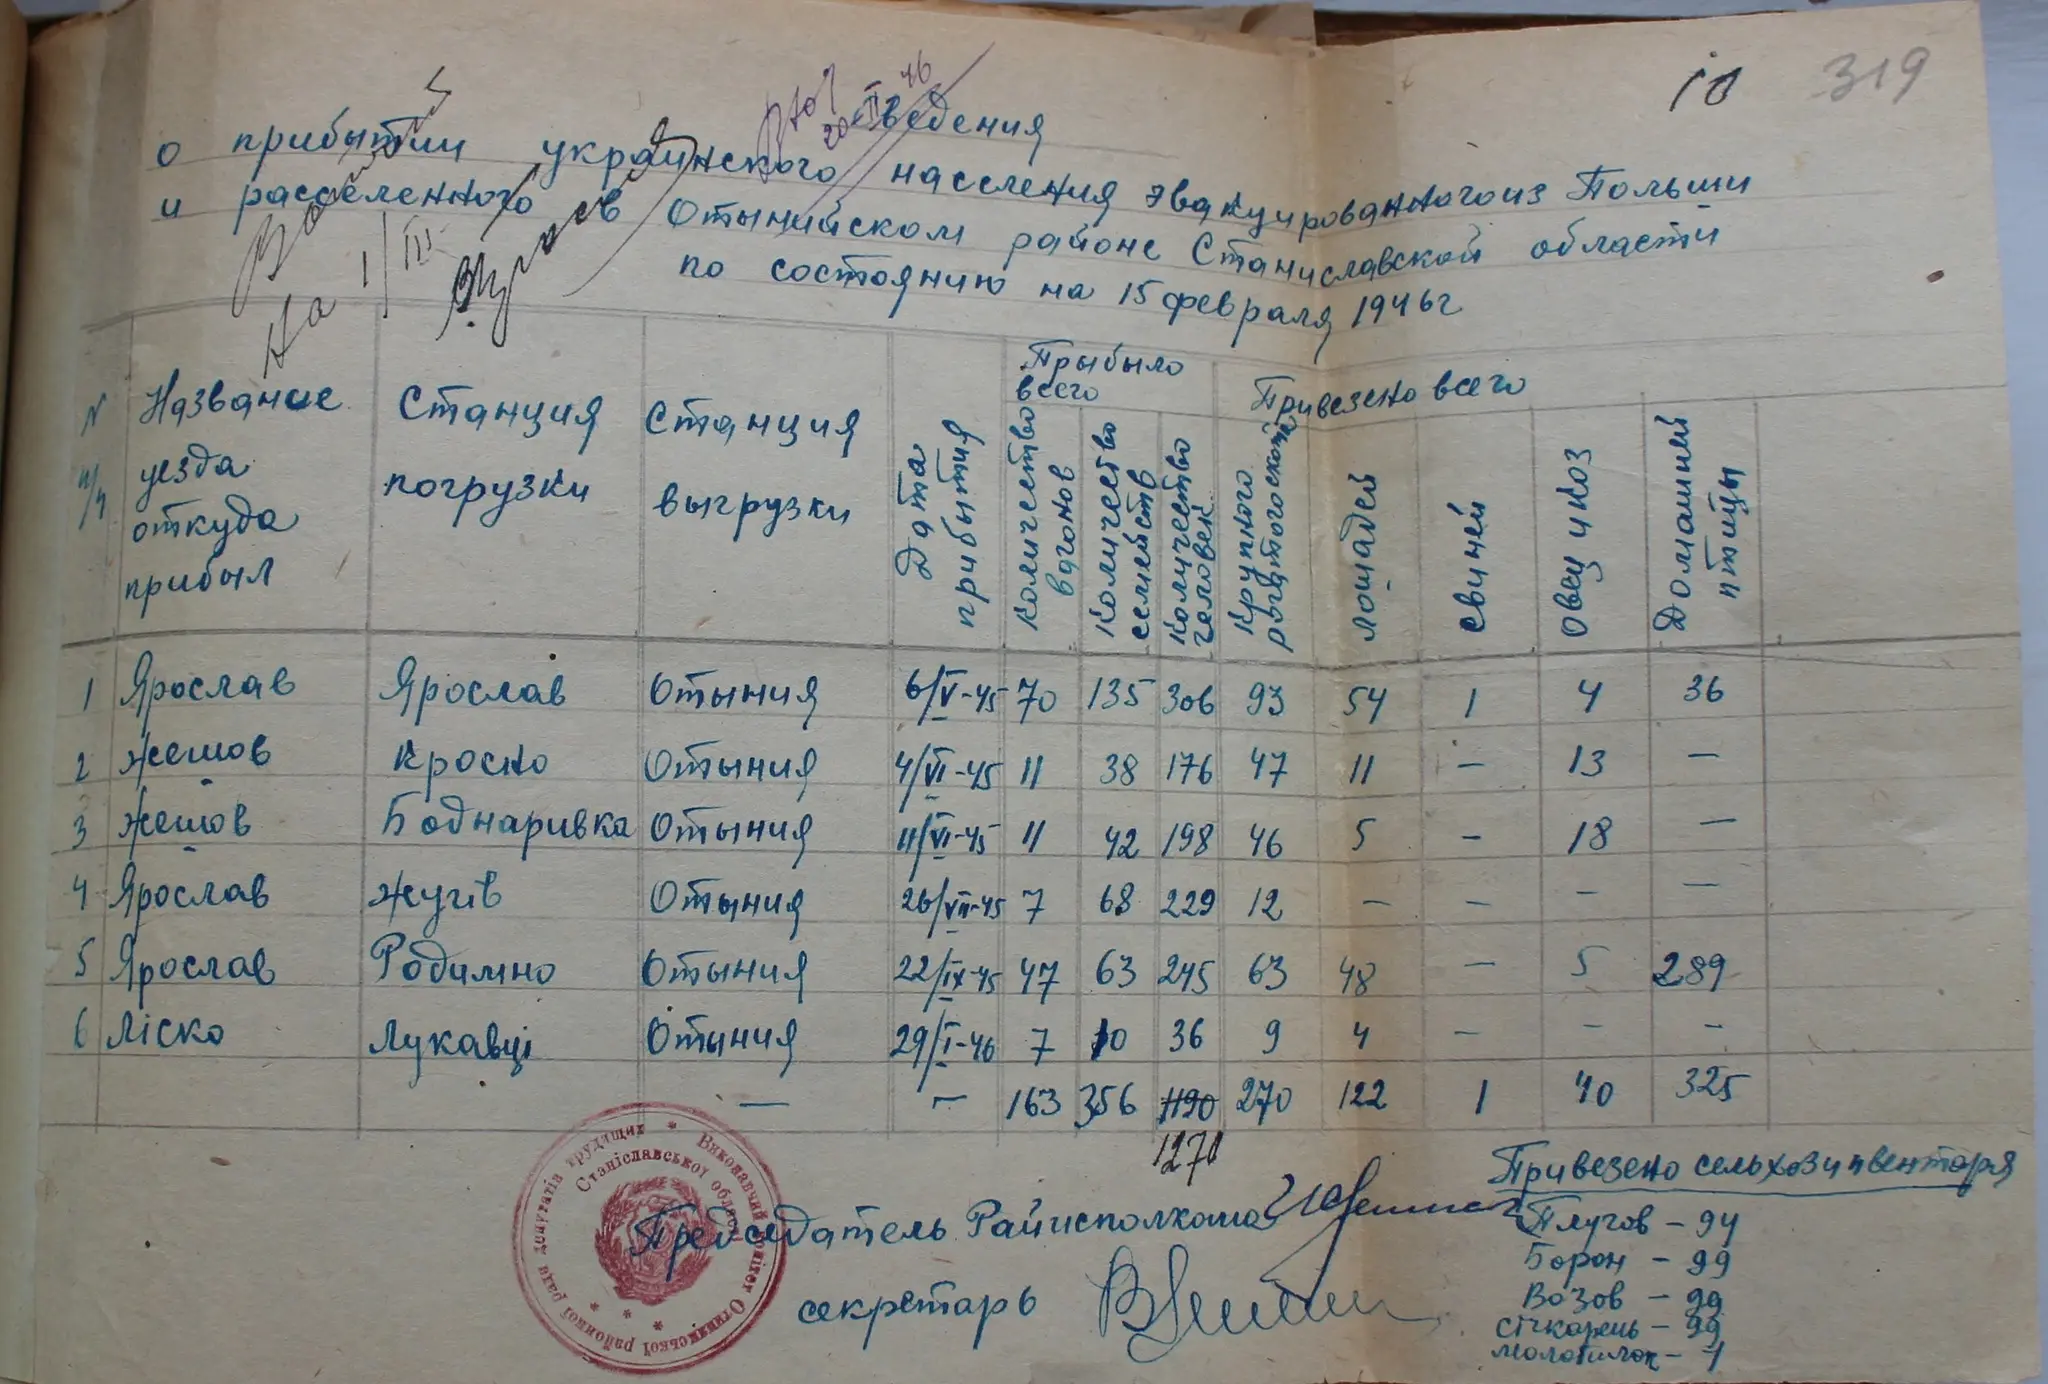 10 319
Сведения
о прибытии украинского населения эвакуированного из Польши
и расселенного в Отынийском районе Станиславской области
по состоянию на 15 февраля 1946г
На 1/III
20 II 46
N п/п
Название уезда откуда прибыл
Станция погрузки
Станция выгрузки
Дата прибытия
Прыбыло всего
Количество вагонов
Количество семейств
Количество человек
Привезено всего
Крупного рогатого скота
лошадей
свиней
Овец и коз
Домашней птицы
1 Ярослав Ярослав Отыния 6/V-45 70 135 306 93 54 1 4 36
2 Жешов Кросно Отыния 4/VI-45 11 38 176 47 11 – 13 –
3 Жешов Боднаривка Отыния 11/VI-45 11 42 198 46 5 – 18 –
4 Ярослав Жугів Отыния 26/VII-45 7 68 229 12 – – – –
5 Ярослав Родимно Отыния 22/IX-45 47 63 245 63 48 – 5 289
6 Ліско Лукавці Отыния 29/I-46 7 10 36 9 4 – – –
– – 163 356 1190 270 122 1 40 325
1271
Привезено сельхозинвентаря
Председатель Райисполкома
Плугов – 94
Борон – 99
секретарь
Возов – 99
січкарень – 99
молотилок – 1
Виконавчий комітет Отинянської районної ради депутатів трудящих
Станіславської області